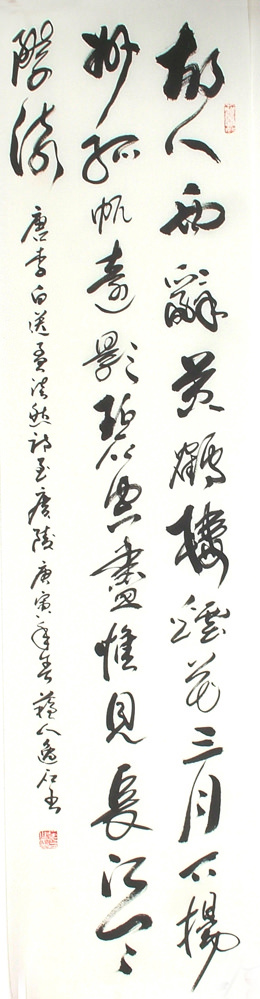 故人西辭黃鶴樓煙花三月下揚
州孤帆遠影碧空盡惟見長江天
際流
唐李白送孟浩然詩至廣陵庚寅年春蘇人逸石書